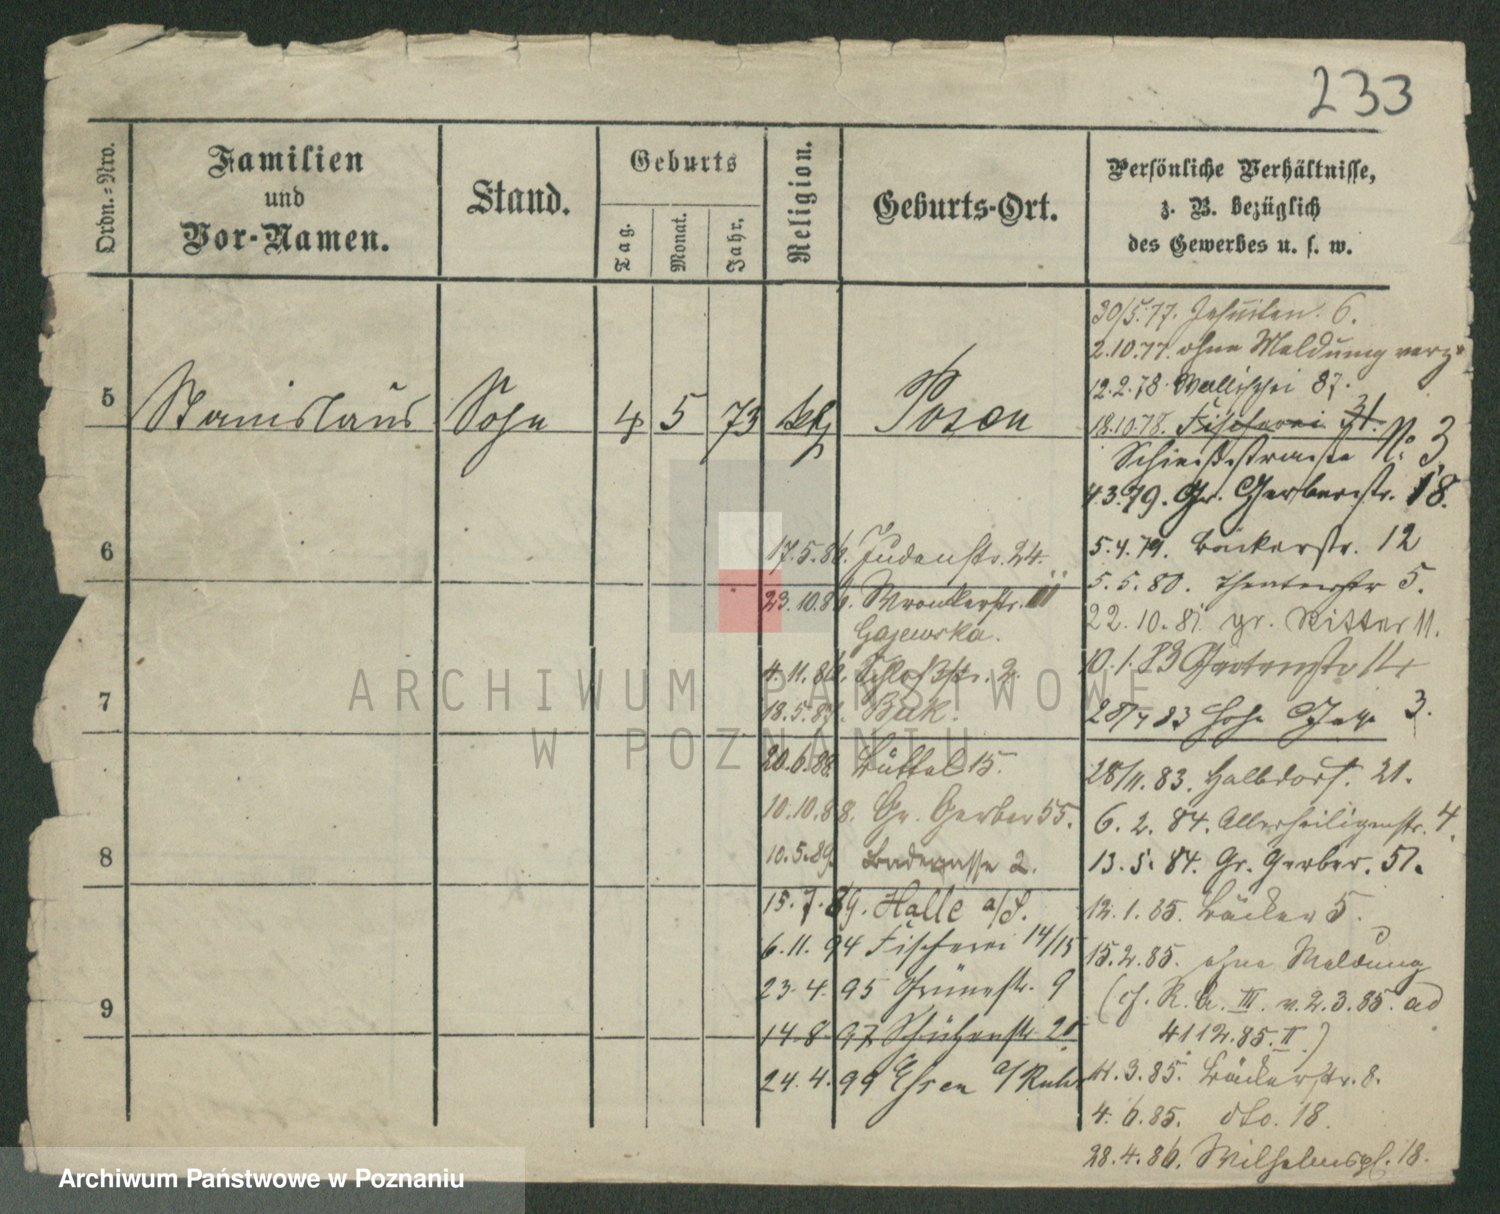 233
Ordn.-Nro.
Familien
und
Vor-Namen.
Stand.
Geburts
Tag.
Monat.
Jahr.
Religion.
Geburts-Ort.
Persönliche Verhältnisse,
z. B. bezüglich
des Gewerbes u. s. w.
5 Stanislaus Sohn 4 5 73 kth Posen
30/5.77. Jesuiten. 6.
2.10.77. ohne Meldung verz.
12.2.78. Wallischei 87.
18.10.78. Fischerei 31.
Schießstrasse No. 3
4.3.79. Gr. Gerberstr. 18.
5.4.79. Bäckerstr. 12
5.5.80. Theaterstr 5.
22.10.81 gr. Ritter 11.
10.1.83 Gartenstr 14
28/4 83 Hohe Gasse 3.
28/11.83. Halbdorf. 21.
6.2.84. Allerheiligenstr. 4.
13.5.84. Gr. Gerber. 51.
12.1.85. Bäcker 5.
15.2.85. ohne Meldung
(cf. R. A. III. v. 2.3.85. ad
4112.85.II.)
11.3.85. Bäckerstr. 8.
4.6.85. dto. 18.
28.4.86. Wilhelmspl. 18.
6
17.5.86. Judenstr. 24.
23.10.86. Wronkerstr. 11
Gajewska.
7
4.11.86. Schloßstr. 2.
18.5.87. Buk.
20.6.88. Büttel 15.
10.10.88. Gr. Gerber 55.
8
10.5.89. Badegasse 2.
15.7.89. Halle a/S.
6.11.94 Fischerei 14/15
9
23.4.95 Grünestr. 9
14.8.97 Schützenstr 20
24.4.99 Essen a/Ruhr
ARCHIWUM PAŃSTWOWE
W POZNANIU
Archiwum Państwowe w Poznaniu